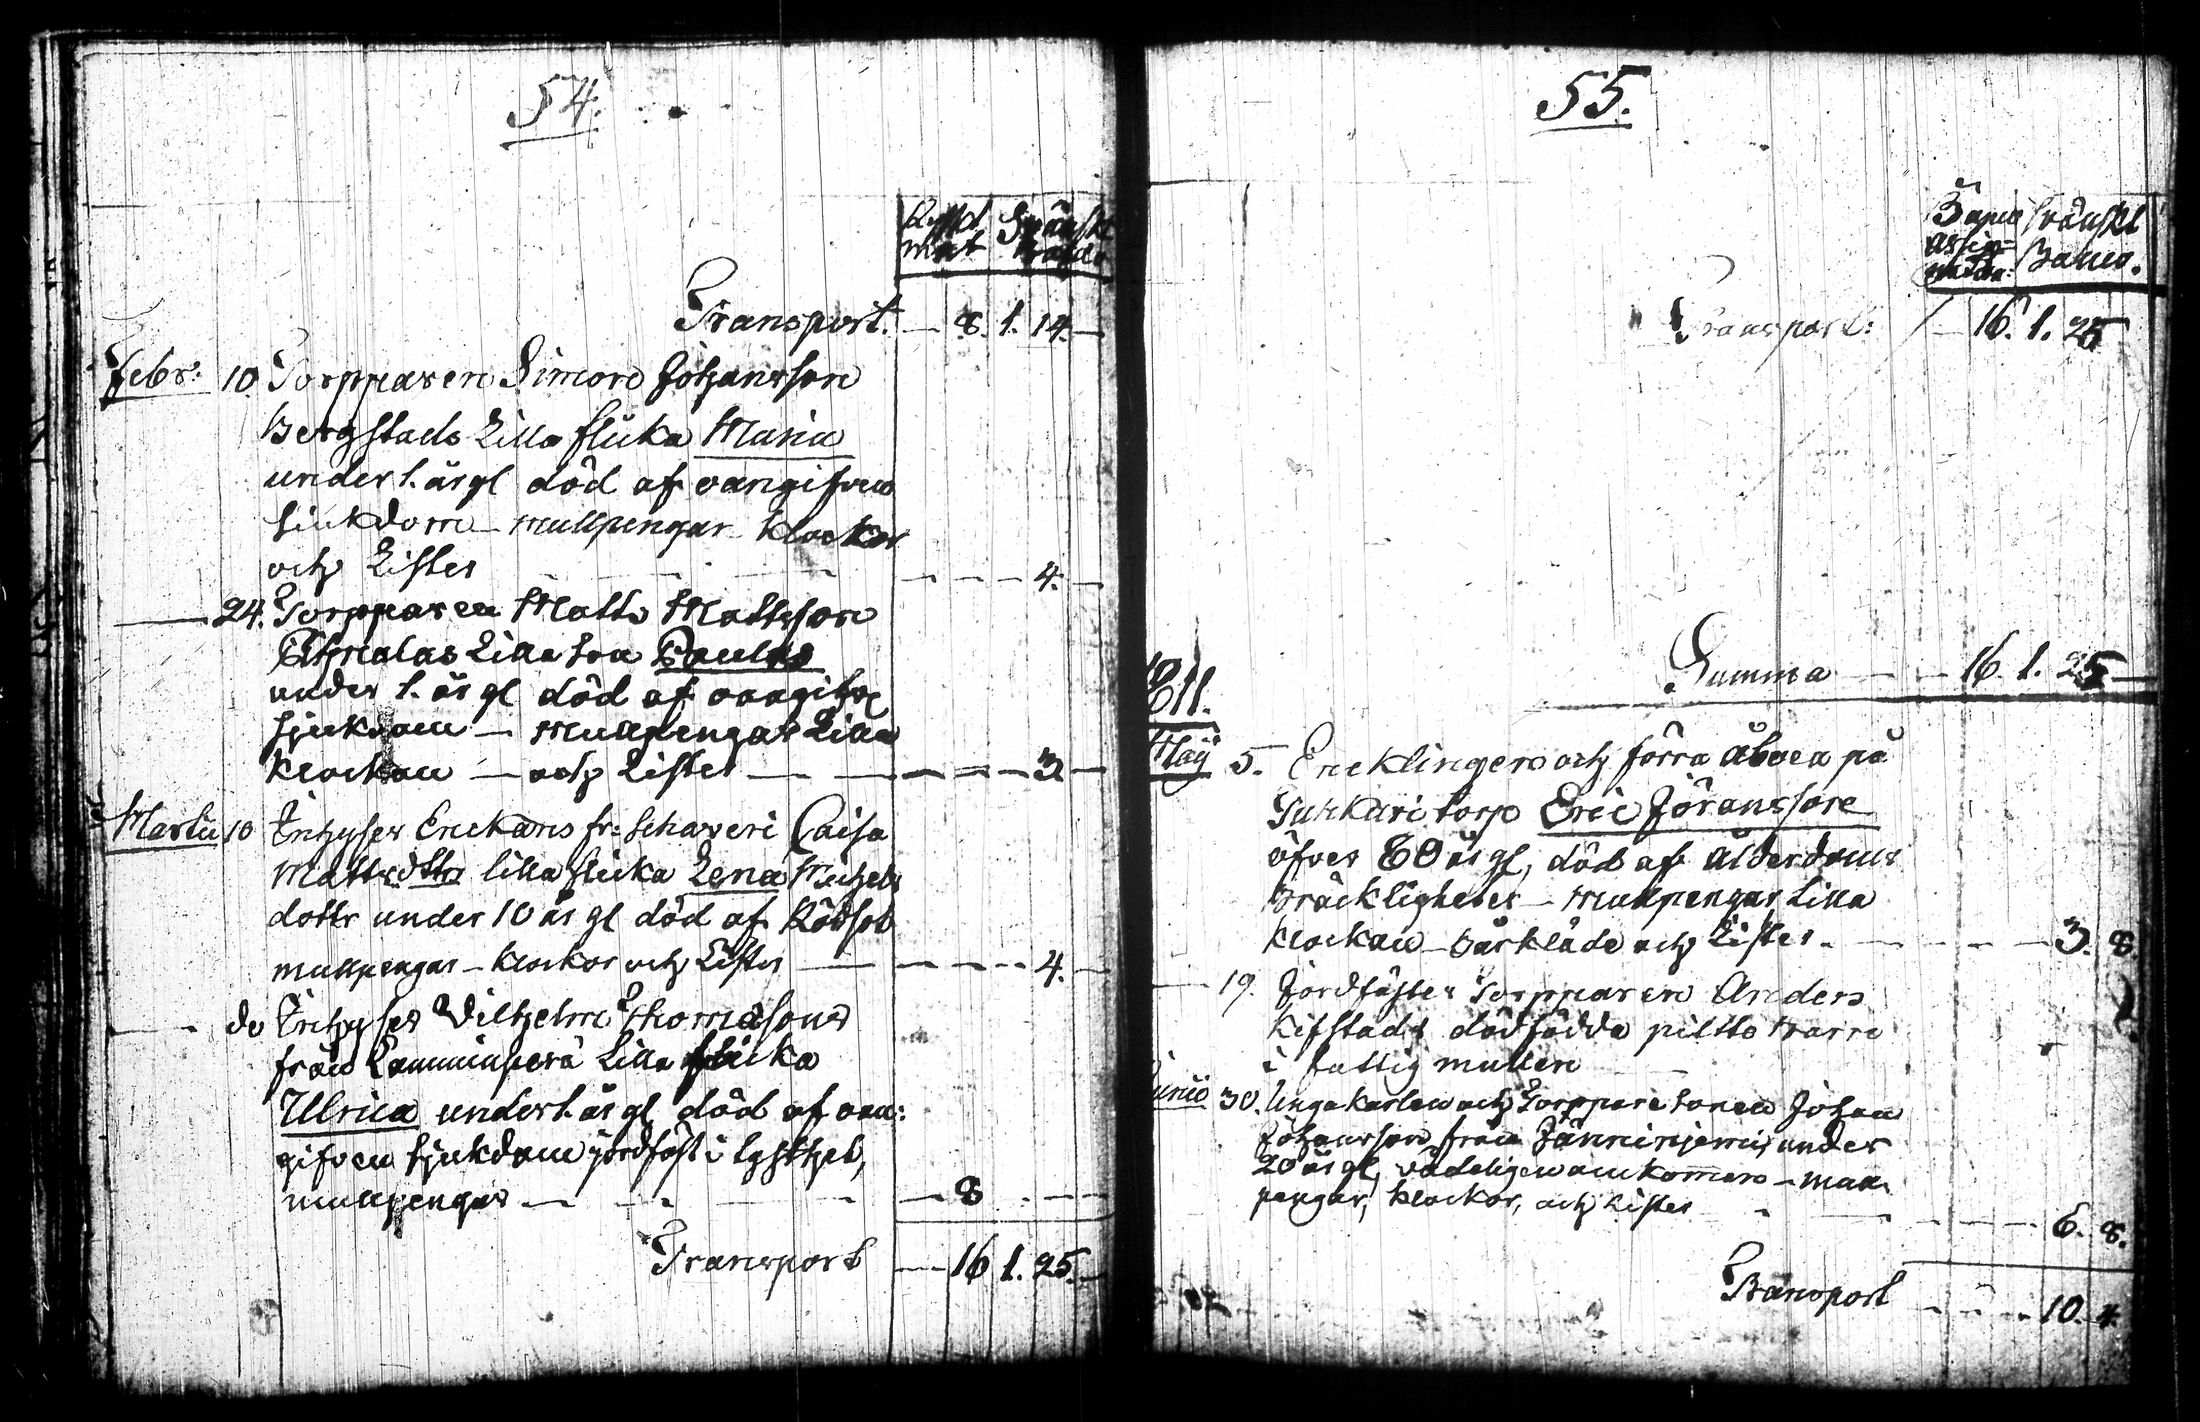 54.
Ryskt Svänskt
mnt
Transport. — 8. 1. 14. —
Febr: 10. Torpparen Simon Johansson
Bergstads Lilla flicka Maria
under 1. år gl död af oangifven
siukdom — mullpengar klockor
och Lister — — — 4. —
— 24. Torpparen Matts Mattsson
Lilla son Paulus
under 1. år gl död af oangifve
sjukdom — Mullpengar Lilla
klockan — och Lister — — — 3 —
Martii 10 Inhyses Enckans fr: Schaveri Caisa
Mattsdttrs lilla flicka Lena Michels
dottr under 10 år gl död af Rödsot
mullpengar — klockor och Lister — — — 4. —
— do Inhyses Vilhelm Thomasons
från Lamminperä Lilla flicka
Ulrica under 1. år gl död af oan:
gifven sjukdom jordfäst i tysthet,
mullpengar — — — 8 . — —
Transport — 16 1. 25. —
55.
Banco Svänskt
assig= Banco.
Transport: — 16. 1. 25
Summa — — 16. 1. 25 —
1811.
Maij 5. Encklingen och förra Åboen på
torp Eric Jöransson
öfver 60 år gl, död af ålderdoms
bräckligheter — mullpengar Lilla
klockan — bårkläde och Lister. — — — 3. 8.
— 19. Jordfästes Torpparen Anders
Kifstads dödfödda piltebarn
i fattig mullen
Junii 30. Unga karlen och Torppare sonen Johan
Johansson från under
20 år gl, vådeligen omkommen — mull
pengar, klockor, och Lister — — — 6. 8.
Transport — — — 10. 4.